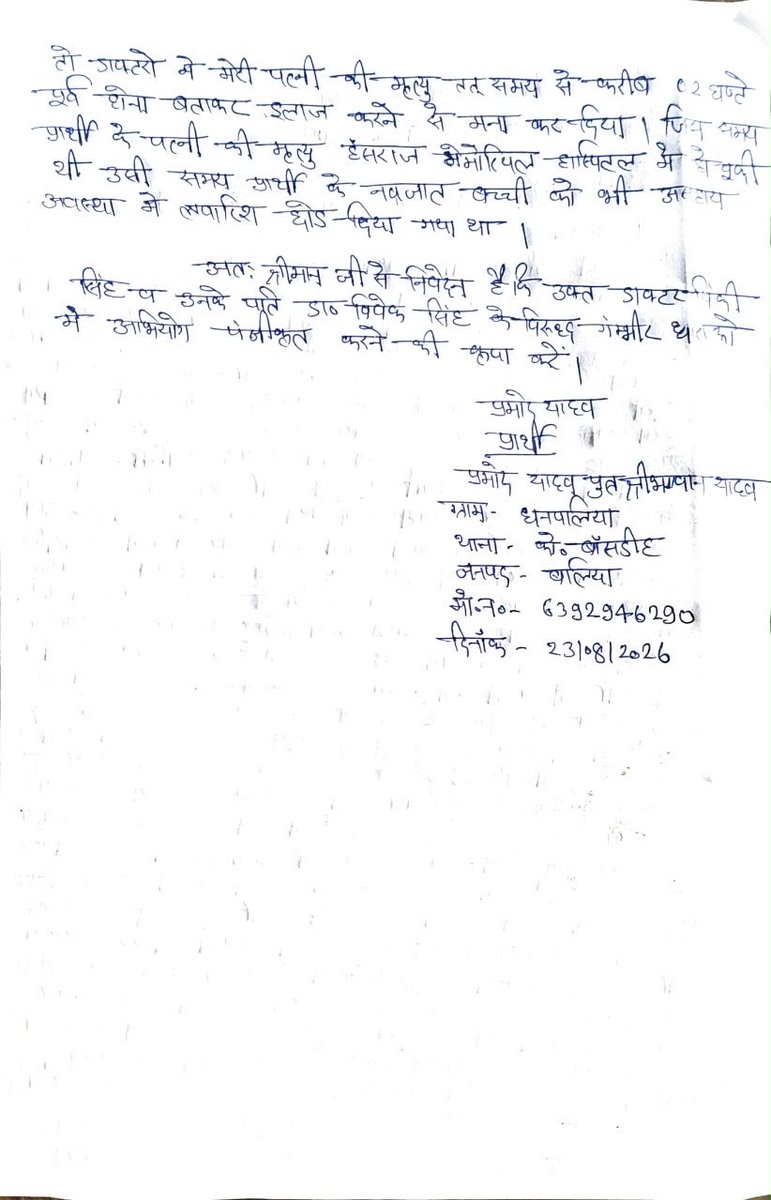 तो डाक्टरो ने मेरी पत्नी की मृत्यु तत् समय से करीब घण्टे
पूर्व होना बताकर इलाज करने से मना कर दिया। जिस समय
प्रार्थी के पत्नी की मृत्यु हंसराज मेमोरियल हास्पिटल में हो चुकी
थी उसी समय प्रार्थी के नवजात बच्ची को भी
अवस्था में लवारिश छोड़ दिया गया था।
अतः श्रीमान जी से निवेदन है कि उक्त डाक्टर
सिंह व उनके पति डा० विवेक सिंह के विरुध्द गम्भीर धाराओ
में अभियोग पंजीकृत करने की कृपा करें।
प्रमोद यादव
प्रार्थी
प्रमोद यादव पुत्र श्रीभगवान यादव
ग्राम- धनपलिया
थाना- को० बाँसडीह
जनपद- बलिया
मो०न०- 6392946290
दिनाँक- 23/08/2026